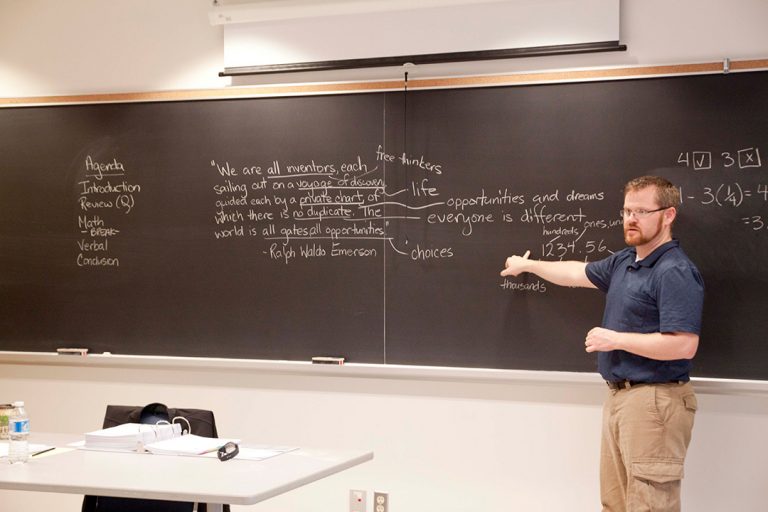 Agenda
Introduction
Review (Q)
Math
-BREAK-
Verbal
Conclusion
"We are all inventors, each
sailing out on a voyage of discovery
guided each by a private chart, of
which there is no duplicate. The
world is all gates, all opportunities."
-Ralph Waldo Emerson
free thinkers
life
opportunities and dreams
everyone is different
choices
hundreds
ones,
1234.56
thousands
4 ✓ 3 x
- 3(1/4) = 4
= 3.